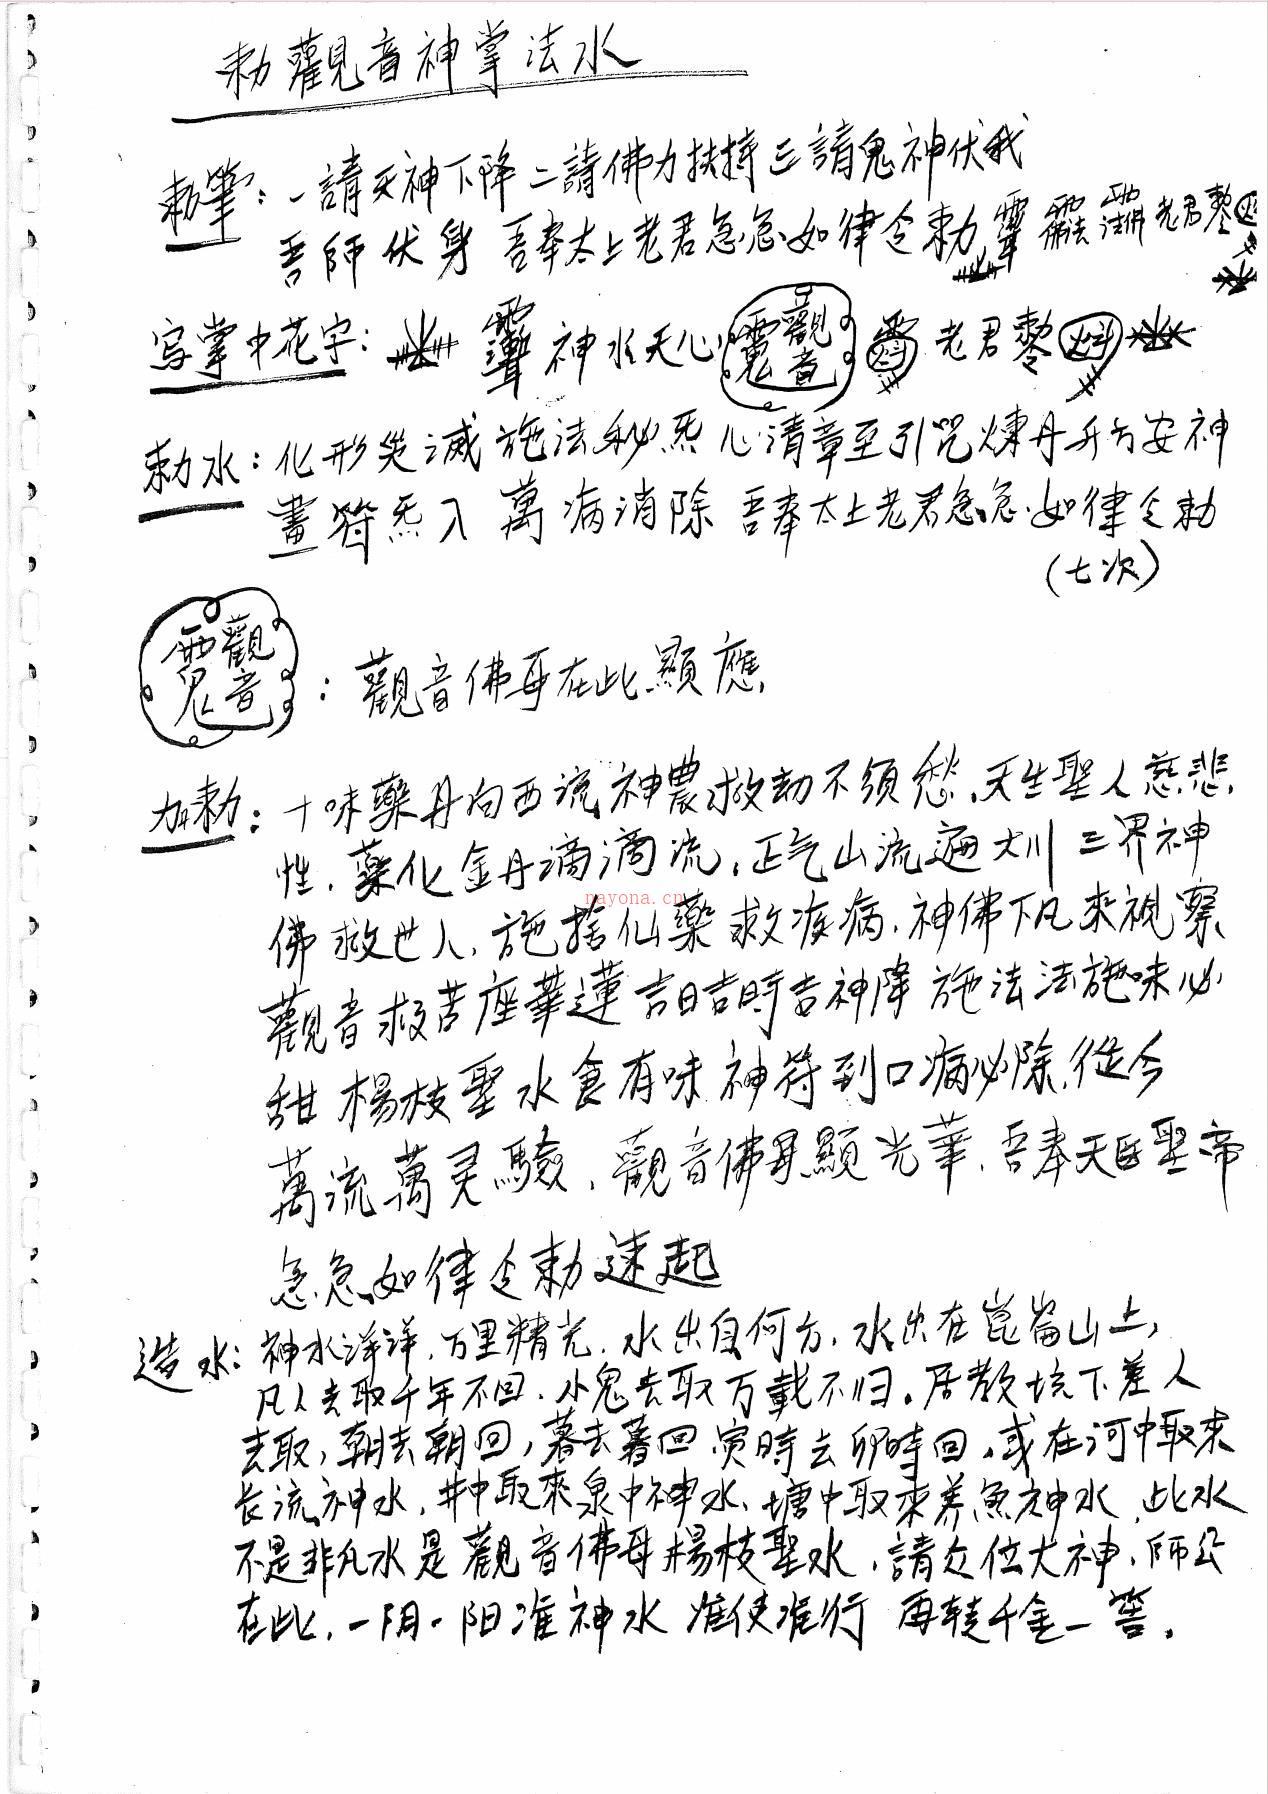 勅觀音神掌法水
勅筆：一請天神下降二請佛力扶持三請鬼神伏我
吾師伏身 吾奉太上老君急急如律令勅 老君
写掌中花字： 神水天心 觀音 老君
勅水：化形災滅施法秘炁心清章至引咒煉丹升为安神
畫符炁入 萬病消除 吾奉太上老君急急如律令勅
(七次)
觀音：觀音佛母在此顯應
加勅：十味藥丹向西流神農救劫不須愁，天生聖人慈悲
性，藥化金丹滴滴流，正气山流遍大川 三界神
佛救世人，施捨仙藥救疾病，神佛下凡來視察
觀音救苦座華蓮 吉日吉時吉神降 施法法施味必
甜 楊枝聖水食有味 神符到口病必除，從今
萬流萬灵驗，觀音佛母顯光華，吾奉天医聖帝
急急如律令勅速起
造水：神水洋洋，万里精光，水出自何方，水出在崑崙山上，
凡人去取千年不回，小鬼去取万載不归。居教坑下差人
去取，朝去朝回，暮去暮回 寅時去卯時回，或在河中取來
長流神水，井中取來泉中神水，塘中取來养魚神水，此水
不是非凡水是觀音佛母楊枝聖水，請众位大神，師公
在此，一阴一阳准神水 准使准行 再转千金一筶。
nayona.cn